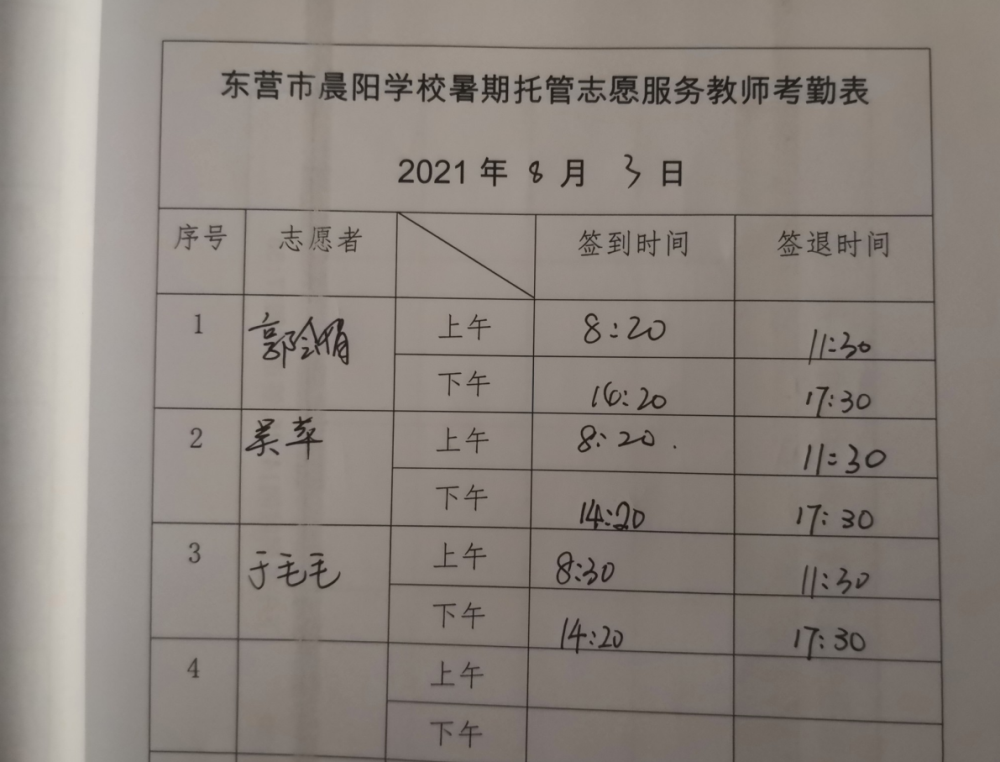 东营市晨阳学校暑期托管志愿服务教师考勤表
2021 年 8 月 3 日
序号 志愿者 签到时间 签退时间
1 郭金娟 上午 8:20 11:30
下午 16:20 17:30
2 吴苹 上午 8:20. 11:30
下午 14:20 17:30
3 于毛毛 上午 8:30 11:30
下午 14:20 17:30
4 上午
下午